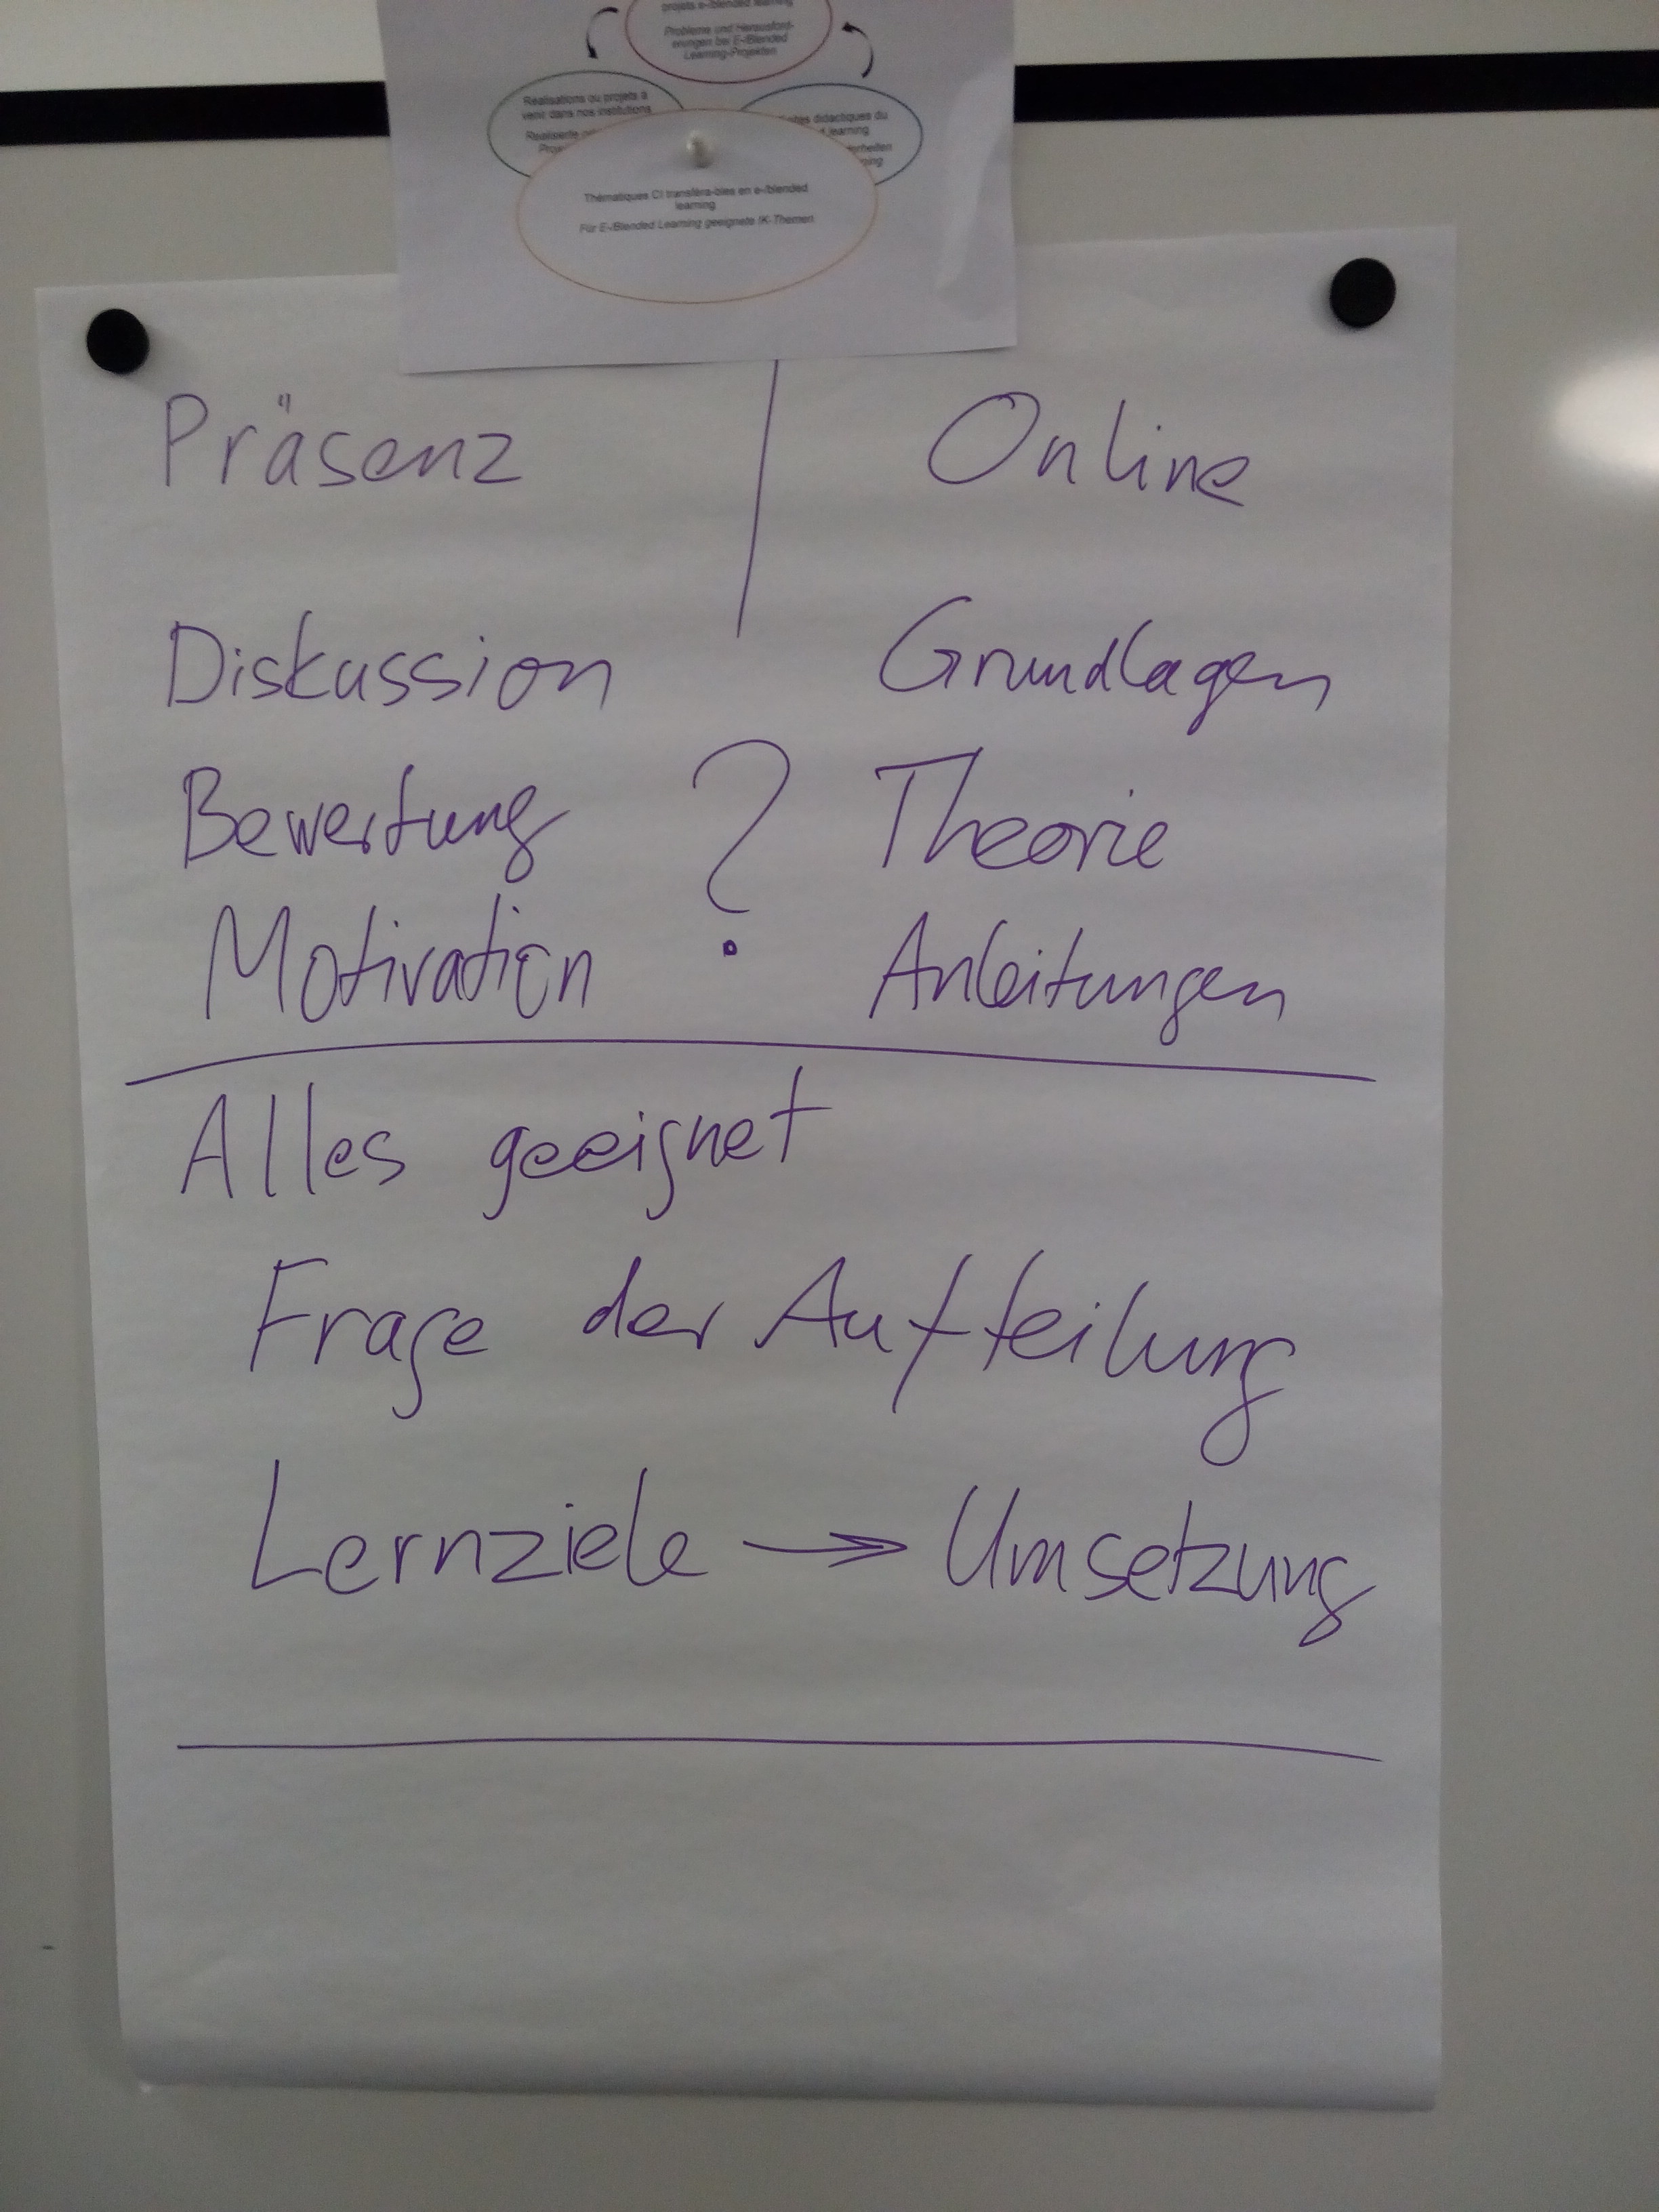 projets e-/blended learning
Probleme und Herausford-
erungen bei E-/Blended
Learning-Projekten
Réalisations ou projets à
venir dans nos institutions
Realisierte
didactiques du
learning
Thématiques CI transféra-bles en e-/blended
learning
Für E-/Blended Learning geeignete IK-Themen
Präsenz Online
Diskussion Grundlagen
Bewertung ? Theorie
Motivation Anleitungen
Alles geeignet
Frage der Aufteilung
Lernziele → Umsetzung